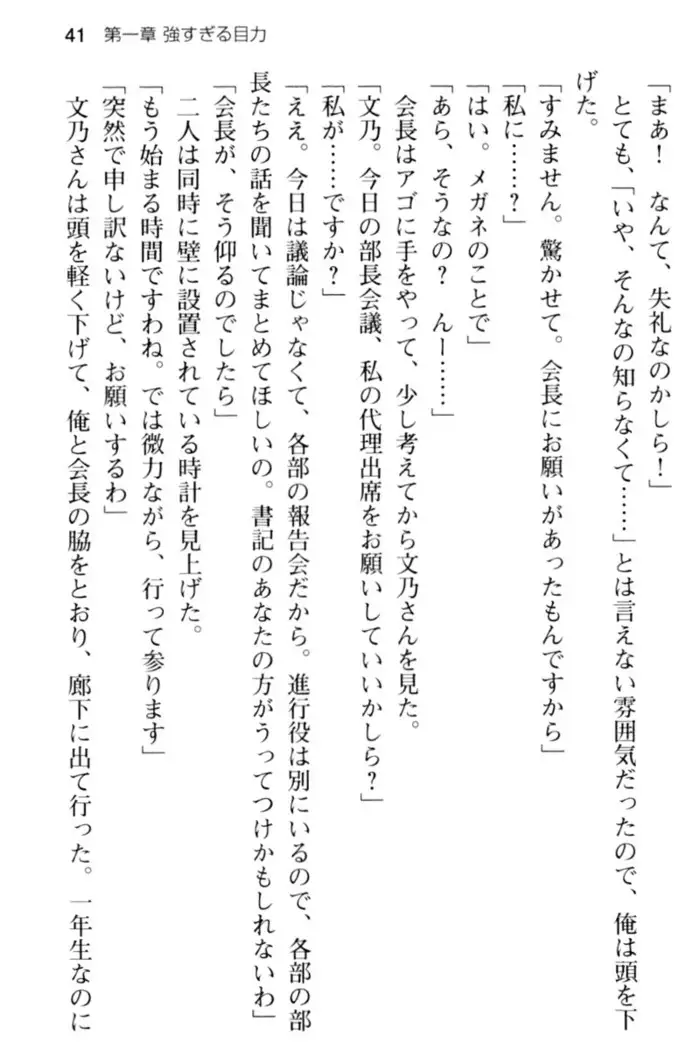 41 第一章 強すぎる目力
「まあ！　なんて、失礼なのかしら！」
　とても、「いや、そんなの知らなくて……」とは言えない雰囲気だったので、俺は頭を下
げた。
「すみません。驚かせて。会長にお願いがあったもんですから」
「私に……？」
「はい。メガネのことで」
「あら、そうなの？　んー……」
　会長はアゴに手をやって、少し考えてから文乃さんを見た。
「文乃。今日の部長会議、私の代理出席をお願いしていいかしら？」
「私が……ですか？」
「ええ。今日は議論じゃなくて、各部の報告会だから。進行役は別にいるので、各部の部
長たちの話を聞いてまとめてほしいの。書記のあなたの方がうってつけかもしれないわ」
「会長が、そう仰るのでしたら」
　二人は同時に壁に設置されている時計を見上げた。
「もう始まる時間ですわね。では微力ながら、行って参ります」
「突然で申し訳ないけど、お願いするわ」
　文乃さんは頭を軽く下げて、俺と会長の脇をとおり、廊下に出て行った。一年生なのに